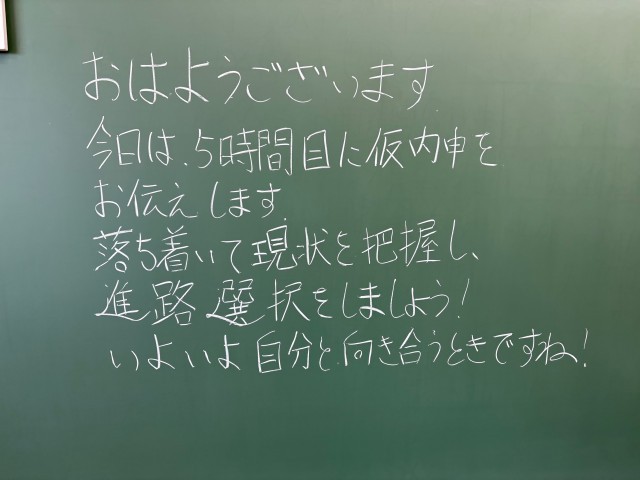 おはようございます
今日は、5時間目に仮内申を
お伝えします。
落ち着いて現状を把握し、
進路選択をしましょう!
いよいよ自分と向き合うときですね!